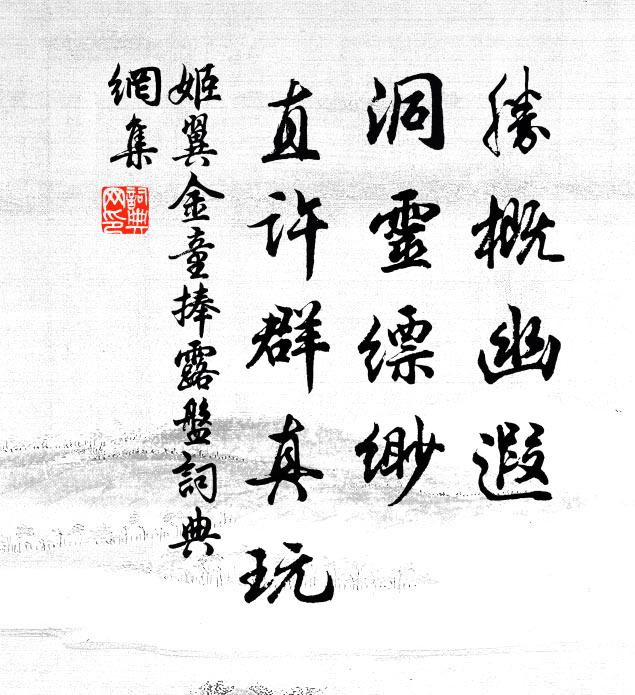 勝概幽遐
洞靈縹緲
直許群真玩
姬翼金童捧露盤詞典
網集
詞典
网印